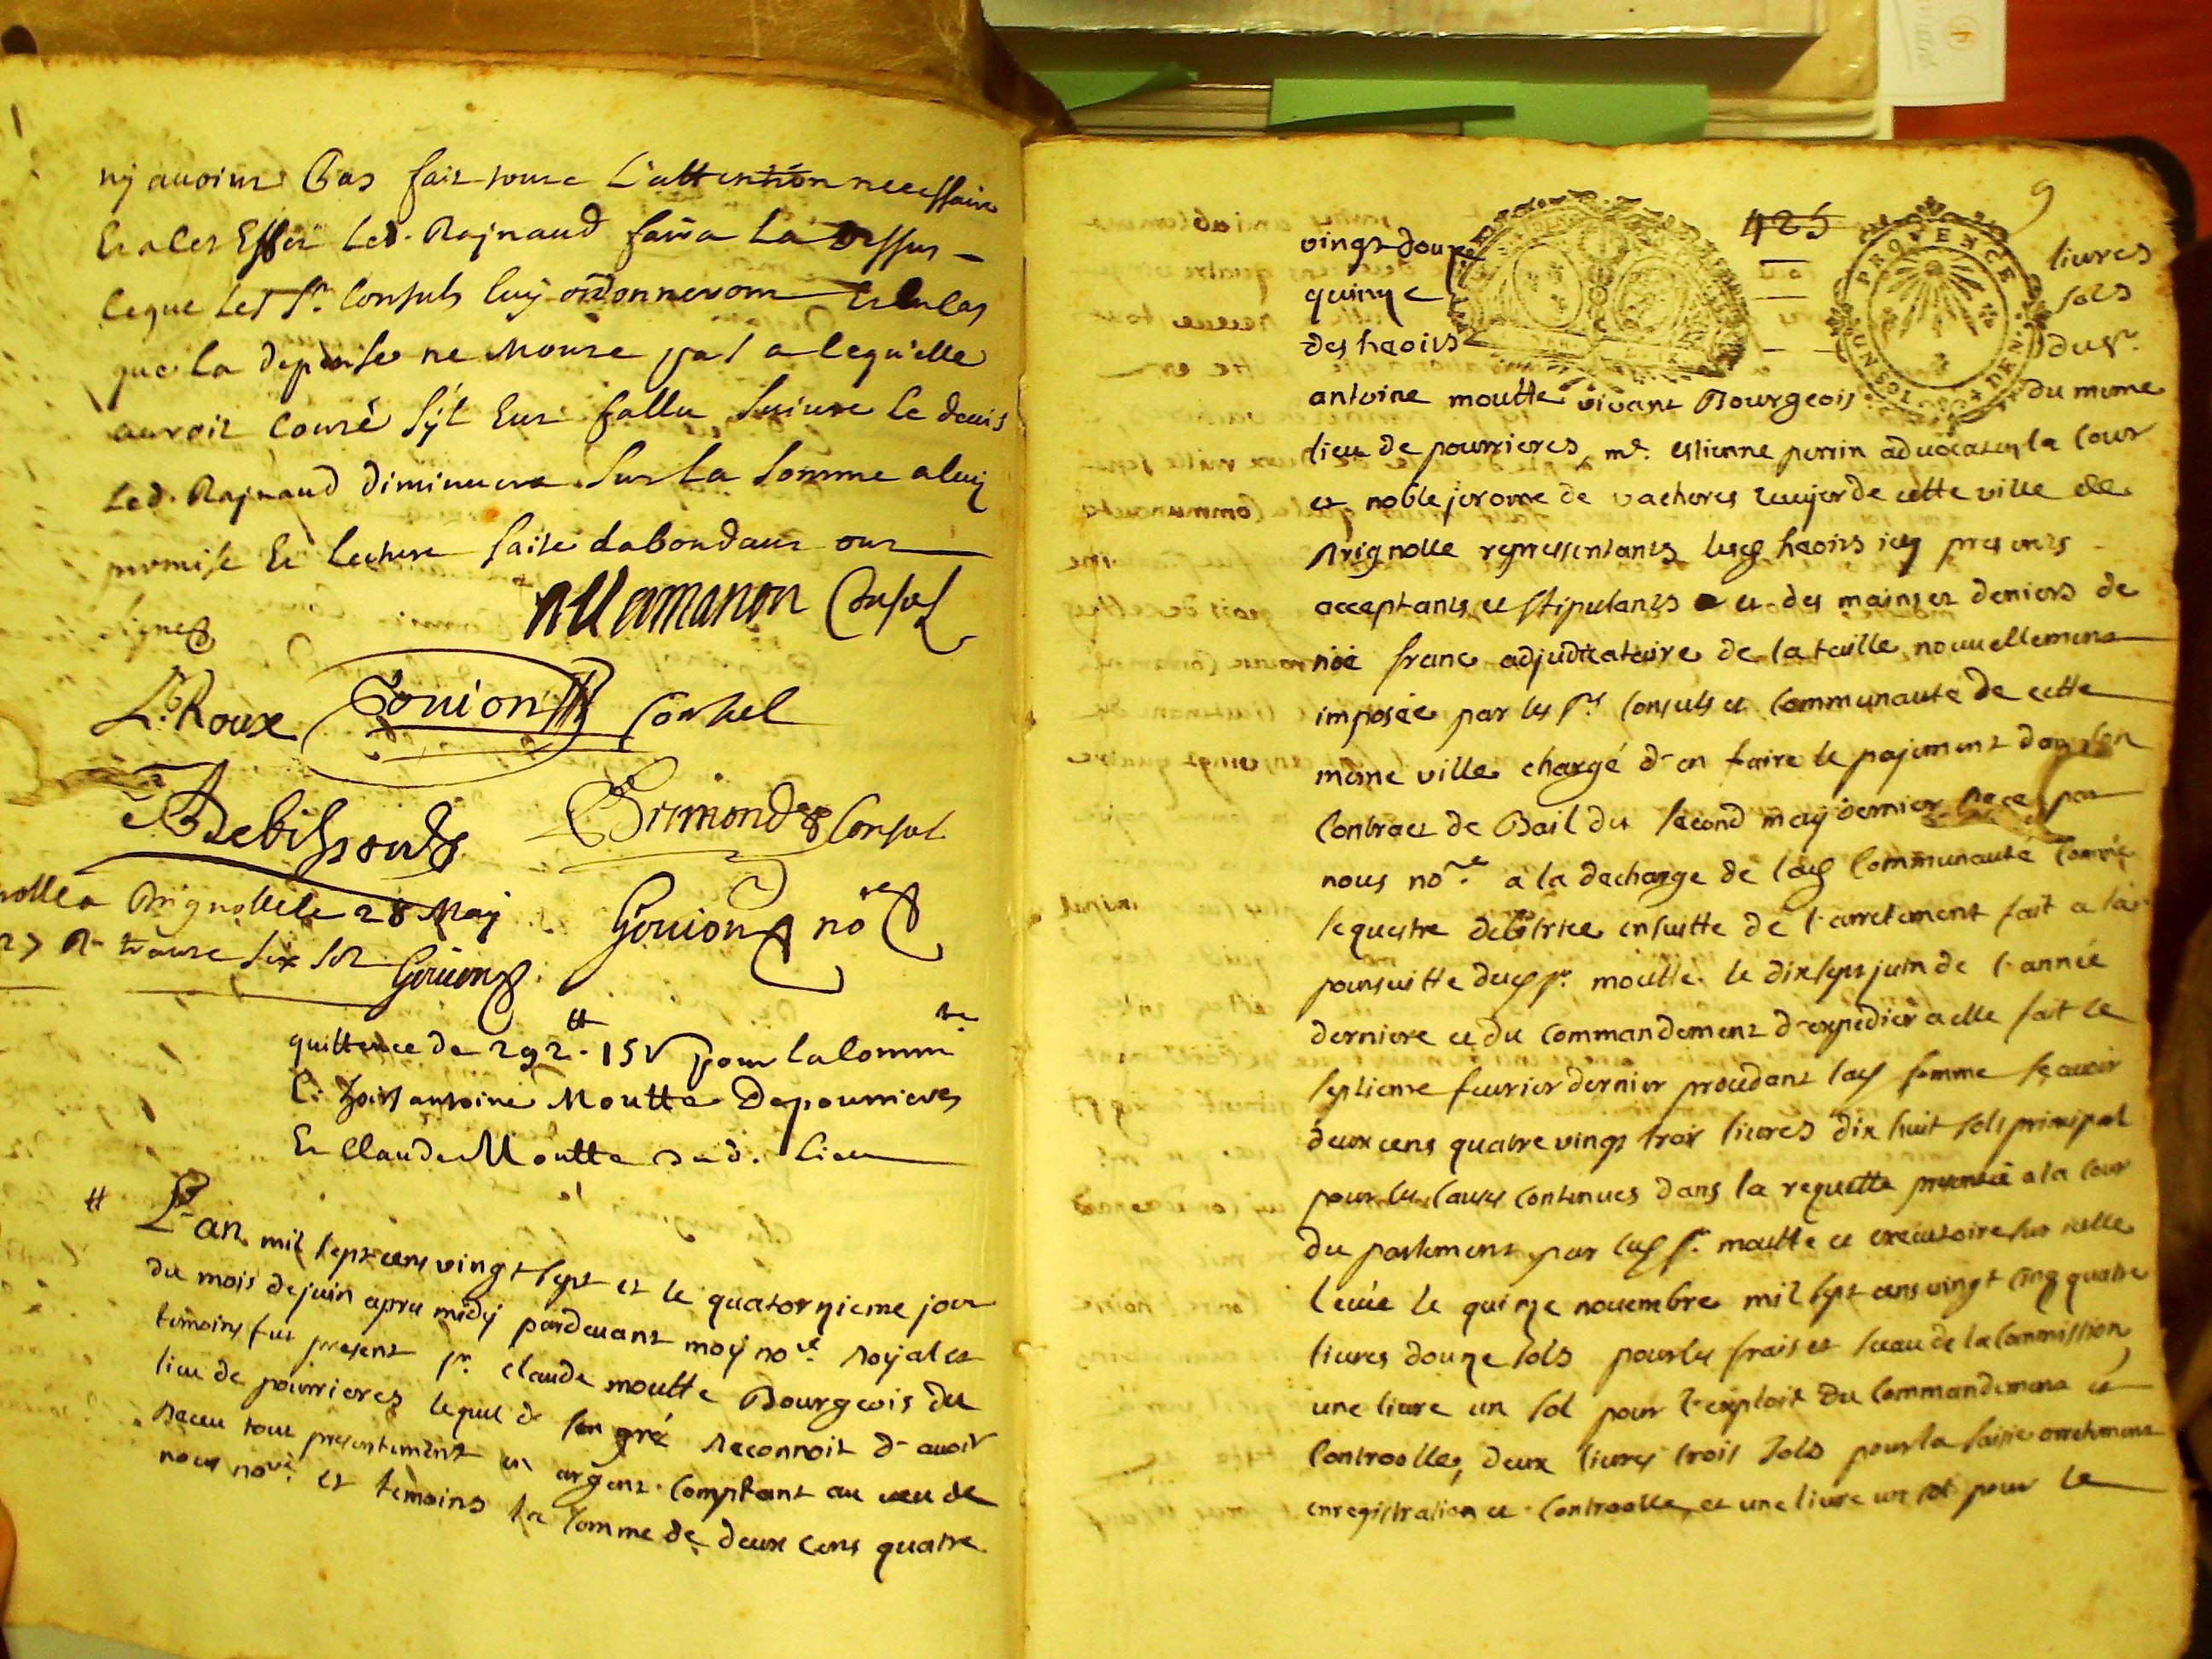 ny avoient pas fait toute l'attention necessaire
Et a cet Effet led. Rajnaud faira la dessus
ce que les Srs Consuls luy ordonneront Et en cas
que la depense ne monte pas a ce qu'elle
auroit couté s'yl Eut fallu suiure le deuis
led. Rajnaud diminuera sur la somme a luy
promise Et lecture faite dabondant ont
signes
allamanon Consul
L. Roux
Gouion Consul
Debissoud
Grimond Consul
Brignolle le 28 May
six sols Gouion
Gouion nore
quittence de 292 tt 15 s pour la Commté
C. hoirs antoine Moutte de pourrieres
Et Claude Moutte dud. lieu
L'an mil sept cens vingt sept et le quatorzieme jour
du mois de juin apres midy pardeuant moy nore Royal et
temoins fut present sr. claude moutte Bourgeois du
lieu de pourrieres lequel de son gré Reconnoit d'avoir
Receu tout presentement en argent comptant au veu de
nous nore. et temoins la somme de deux cens quatre
9
425
vingt douze livres
quinze sols
des heoirs du sr.
antoine moutte vivant Bourgeois du meme
lieu de pourrieres, me. estienne perrin advocat en la Cour
et noble jerome de vacheres de cette ville de
Brignolle representants lesd heoirs icy presents
acceptants et stipulants et des mains et deniers de
franc adjudicataire de la taille nouuellement
imposée par les srs Consuls et Communauté de cette
meme ville chargé d'en faire le pajement dans son
Contract de Bail du second may dernier Receu par
nous nore. a la decharge de lad Communauté
sequestre debitrice ensuitte de l'arretement fait a la
poursuitte dud sr. moutte le dix sept juin de l'année
derniere et du Commandement d'expedier a elle fait le
septieme feurier dernier procedant lad somme scavoir
deux cens quatre vingt trois liures dix huit sols principal
pour les causes contenues dans la requette presentée a la Cour
du parlement par led sr. moutte et executoire sur icelle
leuée le quinze nouembre mil sept cens vingt cinq quatre
liures douze sols pour les frais et sceau de la Commission,
une liure un sol pour l'exploit du Commandement et
Controolle, deux liures trois sols pour la saisie arretement
enregistration et Controolle, et une liure un sol pour le
PROVENCE